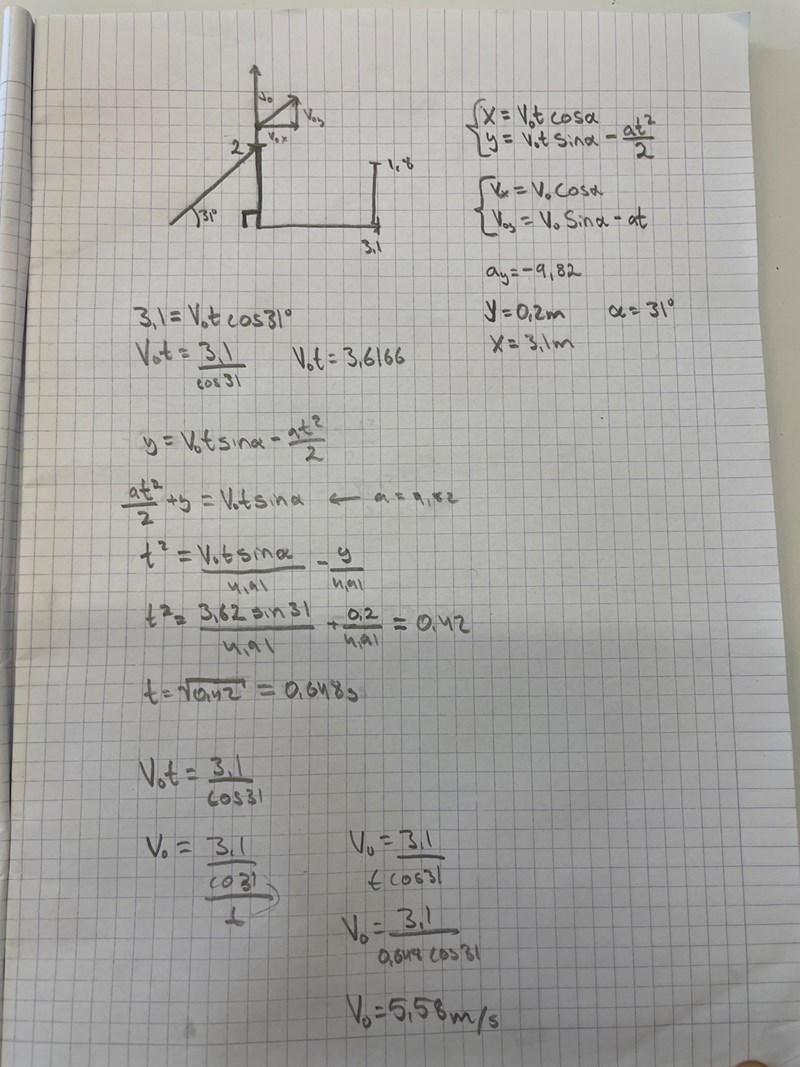 V₀
V₀y
V₀x
2
1,8
31°
3,1
x = V₀t cosα
y = V₀t sinα - at²/2
Vx = V₀ cosα
V₀y = V₀ sinα - at
ay = -9,82
y = 0,2m α = 31°
x = 3,1m
3,1 = V₀t cos31°
V₀t = 3,1/cos31 V₀t = 3,6166
y = V₀t sinα - at²/2
at²/2 + y = V₀t sinα ← a = 9,82
t² = V₀t sinα/4,91 - y/4,91
t² = 3,62 sin31/4,91 + 0,2/4,91 = 0,42
t = √0,42 = 0,648s
V₀t = 3,1/cos31
V₀ = 3,1/co31/t V₀ = 3,1/t cos31
V₀ = 3,1/0,648 cos31
V₀ = 5,58m/s